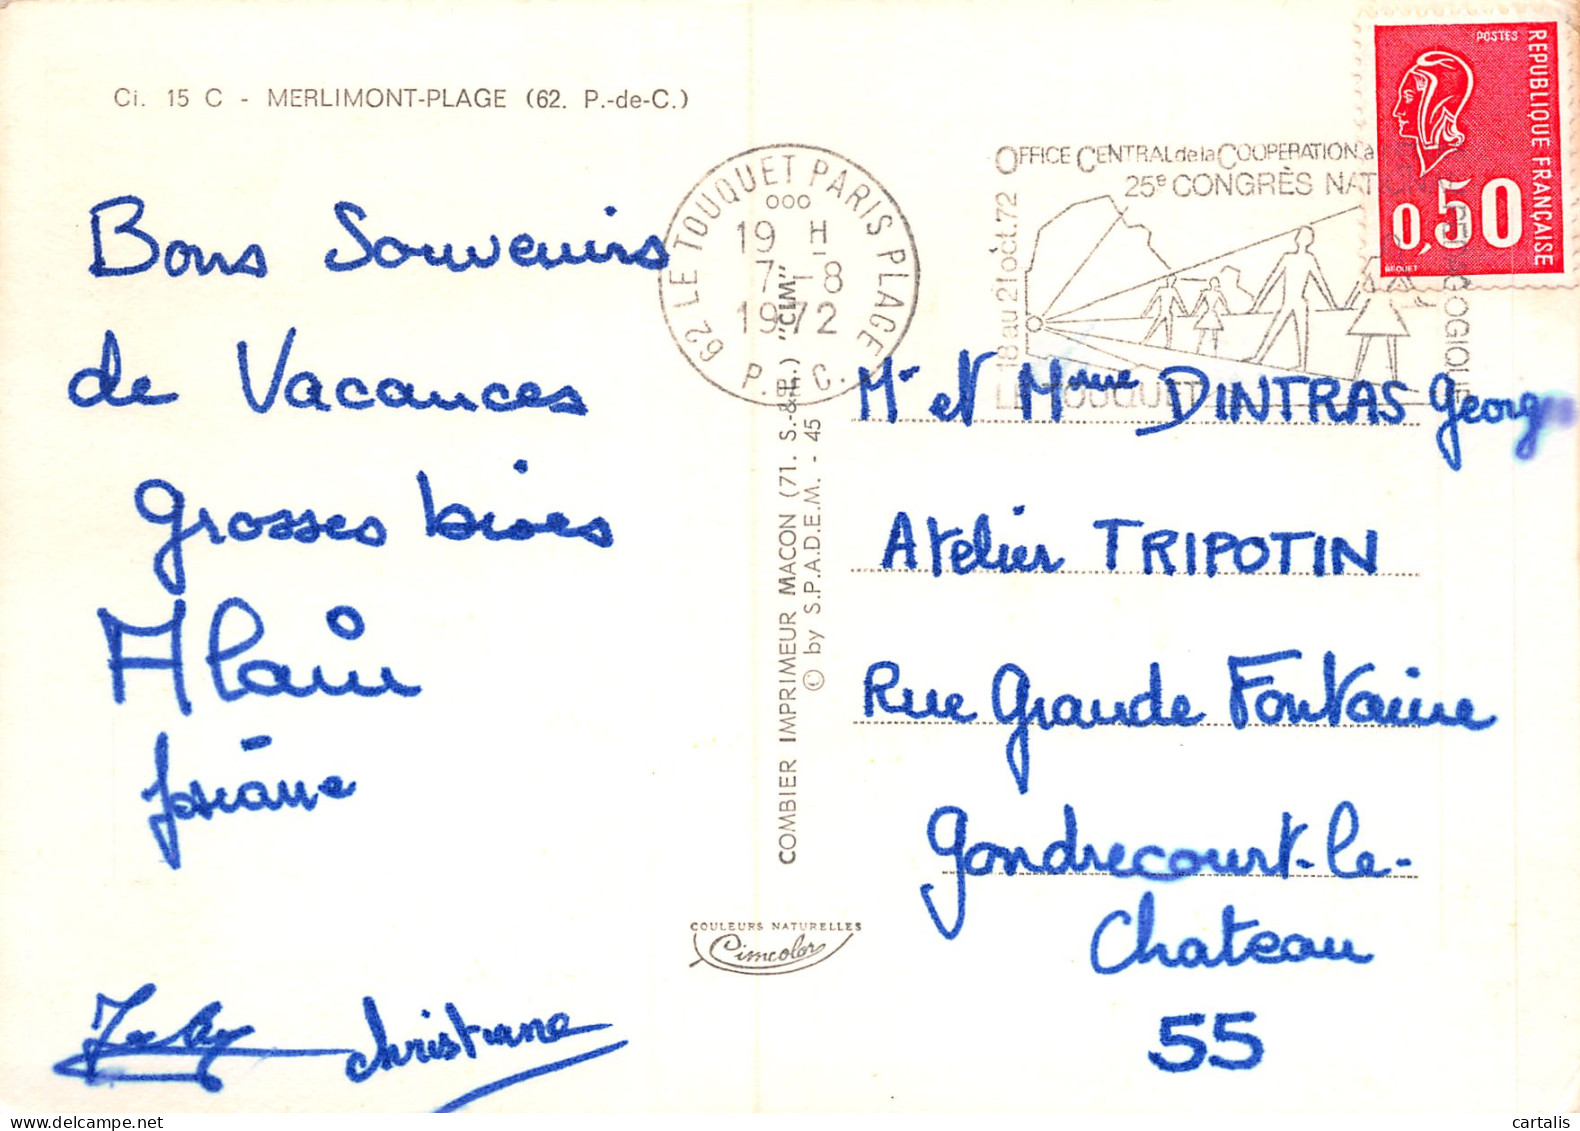 Ci. 15 C - MERLIMONT-PLAGE (62. P.-de-C.)
Bons Souvenirs
de Vacances
grosses bises
Alain
Josiane
Christiane
62 LE TOUQUET PARIS PLAGE
ooo
19 H
7 - 8
1972
P. C.
OFFICE CENTRAL de la COOPERATION à
25e CONGRÈS NATION
18 au 21 oct. 72
LE TOUQUET
POSTES
REPUBLIQUE FRANÇAISE
0,50
BEQUET
COMBIER IMPRIMEUR MACON (71. S.-&-L.) "CIM"
© by S.P.A.D.E.M. - 45
COULEURS NATURELLES
Cimcolor
Mr et Mme DINTRAS Georges
Atelier TRIPOTIN
Rue Grande Fontaine
Gondrecourt-le-
Chateau
55
www.delcampe.net
cartalis